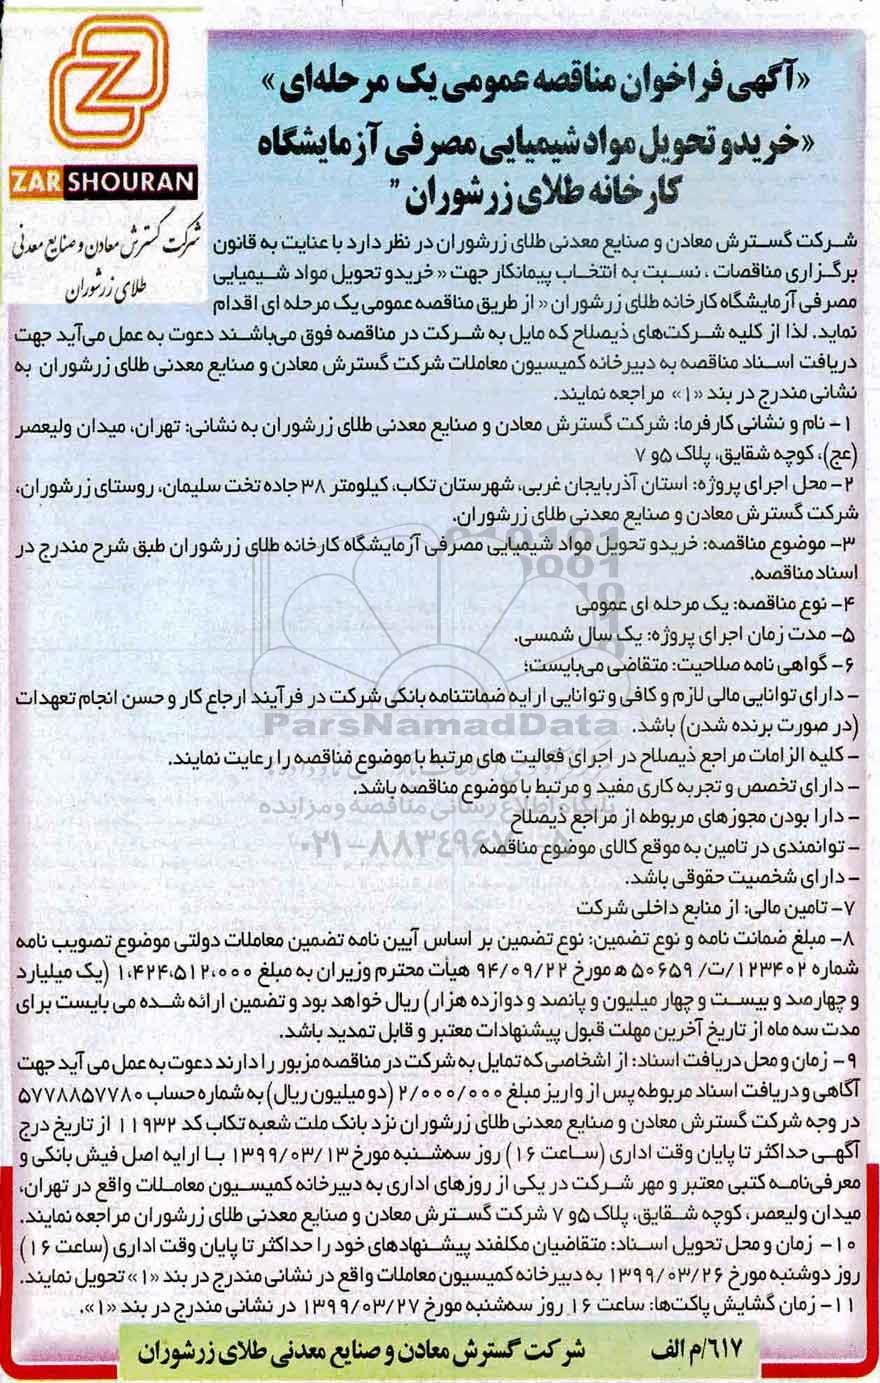 «آگهی فراخوان مناقصه عمومی یک مرحله‌ای»
«خریدو تحویل مواد شیمیایی مصرفی آزمایشگاه
کارخانه طلای زرشوران"
ZAR SHOURAN
شرکت گسترش معادن و صنایع معدنی
طلای زرشوران
شرکت گسترش معادن و صنایع معدنی طلای زرشوران در نظر دارد با عنایت به قانون
برگزاری مناقصات ، نسبت به انتخاب پیمانکار جهت « خریدو تحویل مواد شیمیایی
مصرفی آزمایشگاه کارخانه طلای زرشوران « از طریق مناقصه عمومی یک مرحله ای اقدام
نماید. لذا از کلیه شرکت‌های ذیصلاح که مایل به شرکت در مناقصه فوق می‌باشند دعوت به عمل می‌آید جهت
دریافت اسناد مناقصه به دبیرخانه کمیسیون معاملات شرکت گسترش معادن و صنایع معدنی طلای زرشوران به
نشانی مندرج در بند «۱» مراجعه نمایند.
۱- نام و نشانی کارفرما: شرکت گسترش معادن و صنایع معدنی طلای زرشوران به نشانی: تهران، میدان ولیعصر
(عج)، کوچه شقایق، پلاک ۵و ۷
۲- محل اجرای پروژه: استان آذربایجان غربی، شهرستان تکاب، کیلومتر ۳۸ جاده تخت سلیمان، روستای زرشوران،
شرکت گسترش معادن و صنایع معدنی طلای زرشوران.
۳- موضوع مناقصه: خریدو تحویل مواد شیمیایی مصرفی آزمایشگاه کارخانه طلای زرشوران طبق شرح مندرج در
اسناد مناقصه.
۴- نوع مناقصه: یک مرحله ای عمومی
۵- مدت زمان اجرای پروژه: یک سال شمسی.
۶- گواهی نامه صلاحیت: متقاضی می‌بایست؛
- دارای توانایی مالی لازم و کافی و توانایی ارایه ضمانتنامه بانکی شرکت در فرآیند ارجاع کار و حسن انجام تعهدات
(در صورت برنده شدن) باشد.
- کلیه الزامات مراجع ذیصلاح در اجرای فعالیت های مرتبط با موضوع مناقصه را رعایت نمایند.
- دارای تخصص و تجربه کاری مفید و مرتبط با موضوع مناقصه باشد.
- دارا بودن مجوزهای مربوطه از مراجع ذیصلاح
- توانمندی در تامین به موقع کالای موضوع مناقصه
- دارای شخصیت حقوقی باشد.
۷- تامین مالی: از منابع داخلی شرکت
۸- مبلغ ضمانت نامه و نوع تضمین: نوع تضمین بر اساس آیین نامه تضمین معاملات دولتی موضوع تصویب نامه
شماره ۱۲۳۴۰۲/ت/ ۵۰۶۵۹ ه مورخ ۹۴/۰۹/۲۲ هیأت محترم وزیران به مبلغ ۱,۴۲۴,۵۱۲,۰۰۰ (یک میلیارد
و چهارصد و بیست و چهار میلیون و پانصد و دوازده هزار) ریال خواهد بود و تضمین ارائه شده می بایست برای
مدت سه ماه از تاریخ آخرین مهلت قبول پیشنهادات معتبر و قابل تمدید باشد.
۹- زمان و محل دریافت اسناد: از اشخاصی که تمایل به شرکت در مناقصه مزبور را دارند دعوت به عمل می آید جهت
آگاهی و دریافت اسناد مربوطه پس از واریز مبلغ ۲/۰۰۰/۰۰۰ (دو میلیون ریال) به شماره حساب ۵۷۷۸۸۵۷۷۸۰
در وجه شرکت گسترش معادن و صنایع معدنی طلای زرشوران نزد بانک ملت شعبه تکاب کد ۱۱۹۳۲ از تاریخ درج
آگهی حداکثر تا پایان وقت اداری (ساعت ۱۶) روز سه‌شنبه مورخ ۱۳۹۹/۰۳/۱۳ با ارایه اصل فیش بانکی و
معرفی‌نامه کتبی معتبر و مهر شرکت در یکی از روزهای اداری به دبیرخانه کمیسیون معاملات واقع در تهران،
میدان ولیعصر، کوچه شقایق، پلاک ۵و ۷ شرکت گسترش معادن و صنایع معدنی طلای زرشوران مراجعه نمایند.
۱۰- زمان و محل تحویل اسناد: متقاضیان مکلفند پیشنهادهای خود را حداکثر تا پایان وقت اداری (ساعت ۱۶)
روز دوشنبه مورخ ۱۳۹۹/۰۳/۲۶ به دبیرخانه کمیسیون معاملات واقع در نشانی مندرج در بند «۱» تحویل نمایند.
۱۱- زمان گشایش پاکت‌ها: ساعت ۱۶ روز سه‌شنبه مورخ ۱۳۹۹/۰۳/۲۷ در نشانی مندرج در بند «۱».
۶۱۷/م الف شرکت گسترش معادن و صنایع معدنی طلای زرشوران
ParsNamadData
پایگاه اطلاع رسانی مناقصه و مزایده